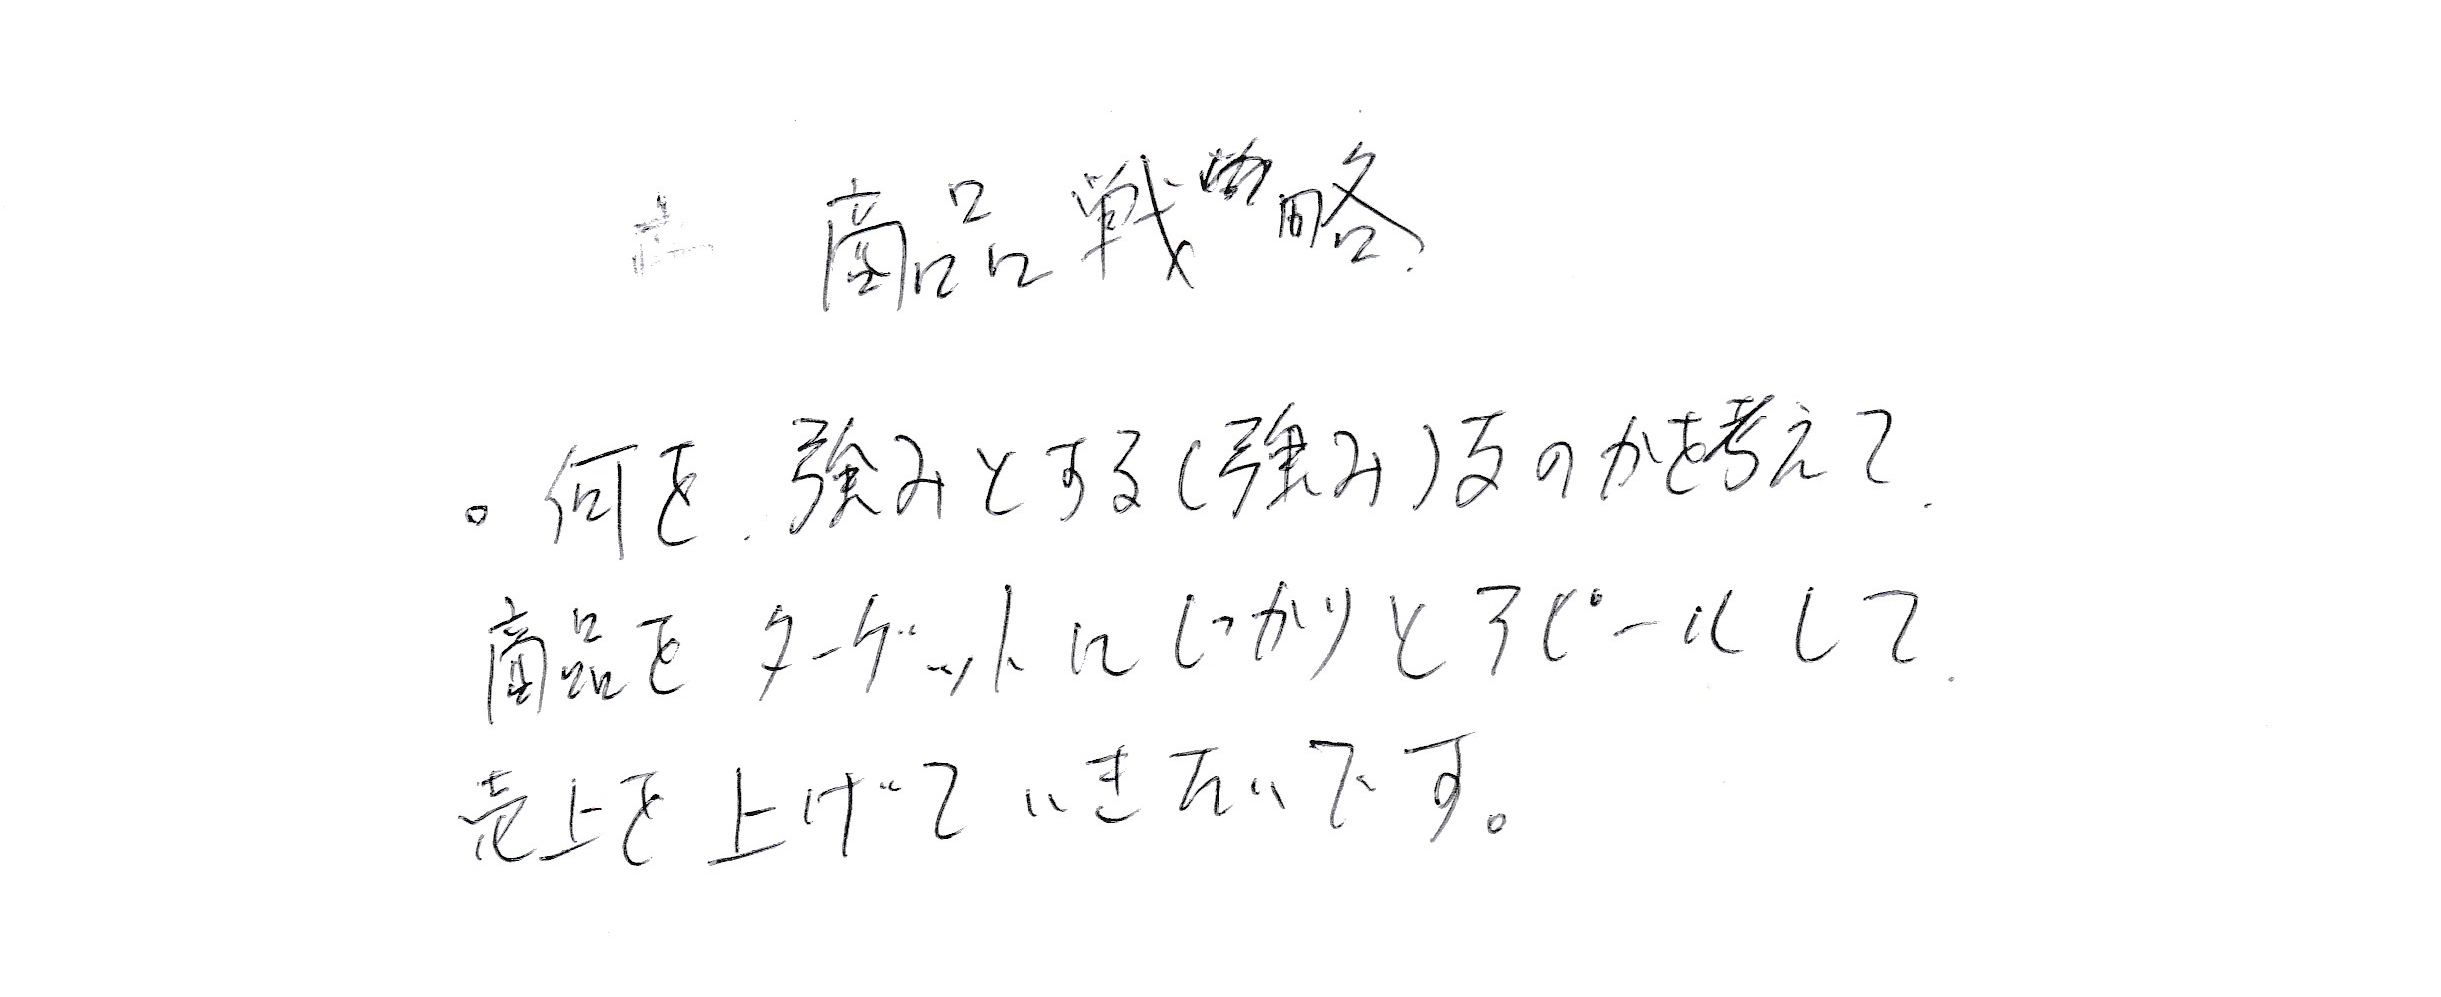 商品戦略
。何を強みとする(強み)なのかを考えて
商品をターゲットにしっかりとアピールして
売上を上げていきたいです。